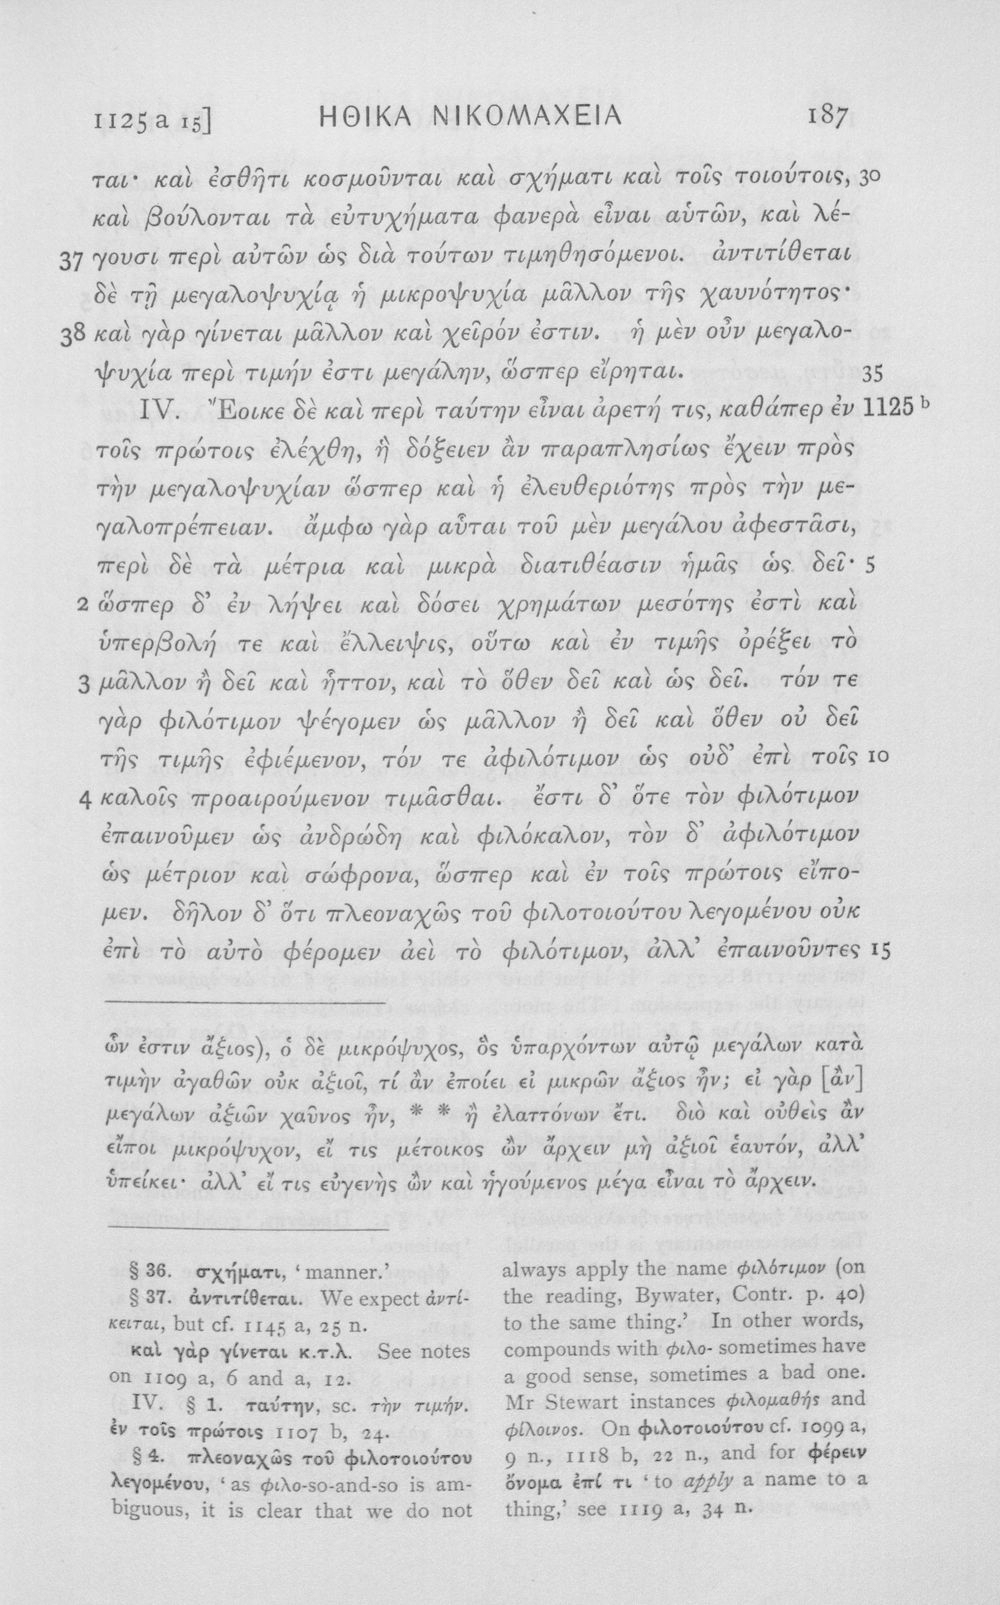 1125 a 15] ΗΘΙΚΑ ΝΙΚΟΜΑΧΕΙΑ 187
ται· καὶ ἐσθῆτι κοσμοῦνται καὶ σχήματι καὶ τοῖς τοιούτοις, 30
καὶ βούλονται τὰ εὐτυχήματα φανερὰ εἶναι αὑτῶν, καὶ λέ-
37 γουσι περὶ αὐτῶν ὡς διὰ τούτων τιμηθησόμενοι. ἀντιτίθεται
δὲ τῇ μεγαλοψυχίᾳ ἡ μικροψυχία μᾶλλον τῆς χαυνότητος·
38 καὶ γὰρ γίνεται μᾶλλον καὶ χεῖρόν ἐστιν. ἡ μὲν οὖν μεγαλο-
ψυχία περὶ τιμήν ἐστι μεγάλην, ὥσπερ εἴρηται. 35
IV. Ἔοικε δὲ καὶ περὶ ταύτην εἶναι ἀρετή τις, καθάπερ ἐν 1125 b
τοῖς πρώτοις ἐλέχθη, ἣ δόξειεν ἂν παραπλησίως ἔχειν πρὸς
τὴν μεγαλοψυχίαν ὥσπερ καὶ ἡ ἐλευθεριότης πρὸς τὴν με-
γαλοπρέπειαν. ἄμφω γὰρ αὗται τοῦ μὲν μεγάλου ἀφεστᾶσι,
περὶ δὲ τὰ μέτρια καὶ μικρὰ διατιθέασιν ἡμᾶς ὡς δεῖ· 5
2 ὥσπερ δ’ ἐν λήψει καὶ δόσει χρημάτων μεσότης ἐστὶ καὶ
ὑπερβολή τε καὶ ἔλλειψις, οὕτω καὶ ἐν τιμῆς ὀρέξει τὸ
3 μᾶλλον ἢ δεῖ καὶ ἧττον, καὶ τὸ ὅθεν δεῖ καὶ ὡς δεῖ. τόν τε
γὰρ φιλότιμον ψέγομεν ὡς μᾶλλον ἢ δεῖ καὶ ὅθεν οὐ δεῖ
τῆς τιμῆς ἐφιέμενον, τόν τε ἀφιλότιμον ὡς οὐδ’ ἐπὶ τοῖς 10
4 καλοῖς προαιρούμενον τιμᾶσθαι. ἔστι δ’ ὅτε τὸν φιλότιμον
ἐπαινοῦμεν ὡς ἀνδρώδη καὶ φιλόκαλον, τὸν δ’ ἀφιλότιμον
ὡς μέτριον καὶ σώφρονα, ὥσπερ καὶ ἐν τοῖς πρώτοις εἴπο-
μεν. δῆλον δ’ ὅτι πλεοναχῶς τοῦ φιλοτοιούτου λεγομένου οὐκ
ἐπὶ τὸ αὐτὸ φέρομεν ἀεὶ τὸ φιλότιμον, ἀλλ’ ἐπαινοῦντες 15
ὧν ἐστιν ἄξιος), ὁ δὲ μικρόψυχος, ὃς ὑπαρχόντων αὐτῷ μεγάλων κατὰ
τιμὴν ἀγαθῶν οὐκ ἀξιοῖ, τί ἂν ἐποίει εἰ μικρῶν ἄξιος ἦν; εἰ γὰρ [ἂν]
μεγάλων ἀξιῶν χαῦνος ἦν, * * ἢ ἐλαττόνων ἔτι. διὸ καὶ οὐθεὶς ἂν
εἴποι μικρόψυχον, εἴ τις μέτοικος ὢν ἄρχειν μὴ ἀξιοῖ ἑαυτόν, ἀλλ’
ὑπείκει· ἀλλ’ εἴ τις εὐγενὴς ὢν καὶ ἡγούμενος μέγα εἶναι τὸ ἄρχειν.
§ 36. σχήματι, ‘manner.’
§ 37. ἀντιτίθεται. We expect ἀντί-
κειται, but cf. 1145 a, 25 n.
καὶ γὰρ γίνεται κ.τ.λ. See notes
on 1109 a, 6 and a, 12.
IV. § 1. ταύτην, sc. τὴν τιμήν.
ἐν τοῖς πρώτοις 1107 b, 24.
§ 4. πλεοναχῶς τοῦ φιλοτοιούτου
λεγομένου, ‘as φιλο-so-and-so is am-
biguous, it is clear that we do not
always apply the name φιλότιμον (on
the reading, Bywater, Contr. p. 40)
to the same thing.’ In other words,
compounds with φιλο- sometimes have
a good sense, sometimes a bad one.
Mr Stewart instances φιλομαθής and
φίλοινος. On φιλοτοιούτου cf. 1099 a,
9 n., 1118 b, 22 n., and for φέρειν
ὄνομα ἐπί τι ‘to apply a name to a
thing,’ see 1119 a, 34 n.